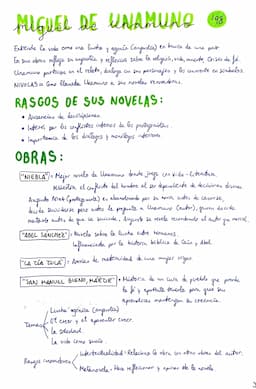 MIGUEL DE UNAMUNO '98
Entiende la vida como una lucha y agonía (angustia) en busca de una fe
En sus obras refleja su angustia y reflexiona sobre la religión, vida, muerte, Crisis de fe.
Unamuno participa en el relato, dialoga con sus personajes y los convierte en símbolos.
NIVOLAS = Como llamaba Unamuno a sus novelas renovadoras.
RASGOS DE SUS NOVELAS:
• Ausencia de descripciones
• Interés por los conflictos internos de los protagonistas.
• Importancia de los diálogos y monólogos internos
OBRAS:
"NIEBLA" → Mejor novela de Unamuno donde juega con vida - Literatura.
Muestra el conflicto del hombre al ser dependiente de decisiones divinas
Augusto Pérez (protagonista) es abandonado por su novia antes de casarse,
decide suicidarse pero antes le pregunta a Unamuno (autor), quien decide
matarlo antes de que se suicide. Augusto se revela recordando al autor que morirá.
"ABEL SÁNCHEZ" → Novela sobre la lucha entre hermanos.
Influenciada por la historia bíblica de Caín y Abel
"LA TÍA TULA" → Ansias de maternidad de una mujer virgen
"SAN MANUEL BUENO, MÁRTIR" → Historia de un cura de pueblo que pierde
la fe y aparenta tenerla para que sus
aprendices mantengan su creencia.
Temas
Lucha agónica (angustia)
El creer y el aparentar creer.
La soledad
La vida como sueño.
Rasgos
Intertextualidad - Relaciona la obra con otras obras del autor.
Metanovela - Hace reflexionar y opinar de la novela